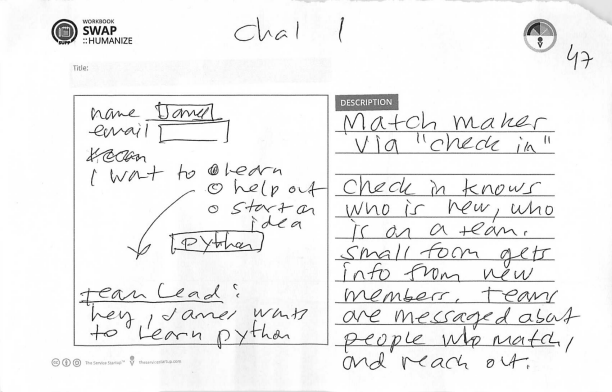 WORKBOOK
SWAP
::HUMANIZE
Chal 1
47
Title:
name James
email
I want to learn
help out
start an
idea
python
team lead:
hey, James wants
to learn python
DESCRIPTION
Match maker
via "check in"
Check in knows
who is new, who
is on a team.
Small form gets
info from new
members. Teams
are messaged about
people who match,
and reach out.